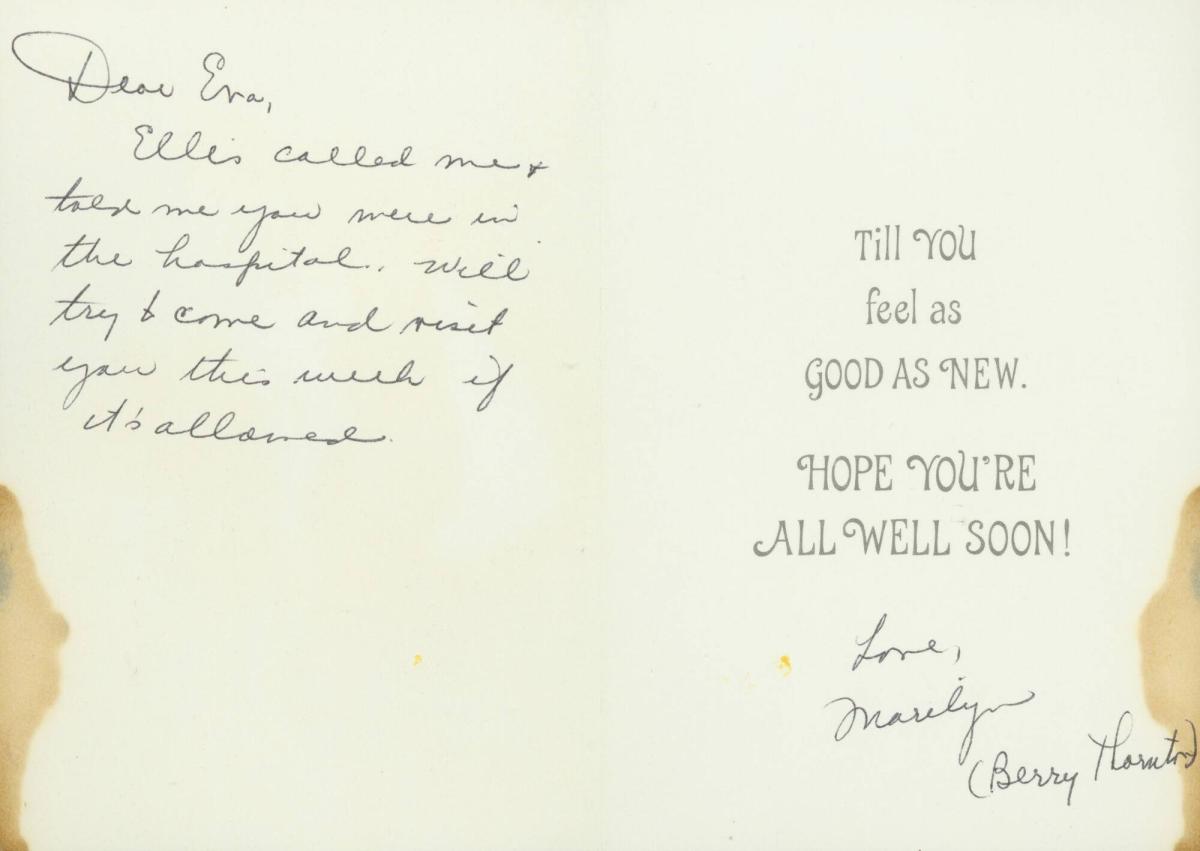 Dear Eva,
Ellis called me &
told me you were in
the hospital. Will
try to come and visit
you this week if
it's allowed.
Till YOU
feel as
GOOD AS NEW.
HOPE YOU'RE
ALL WELL SOON!
Love,
Marilyn
(Berry Thornton)